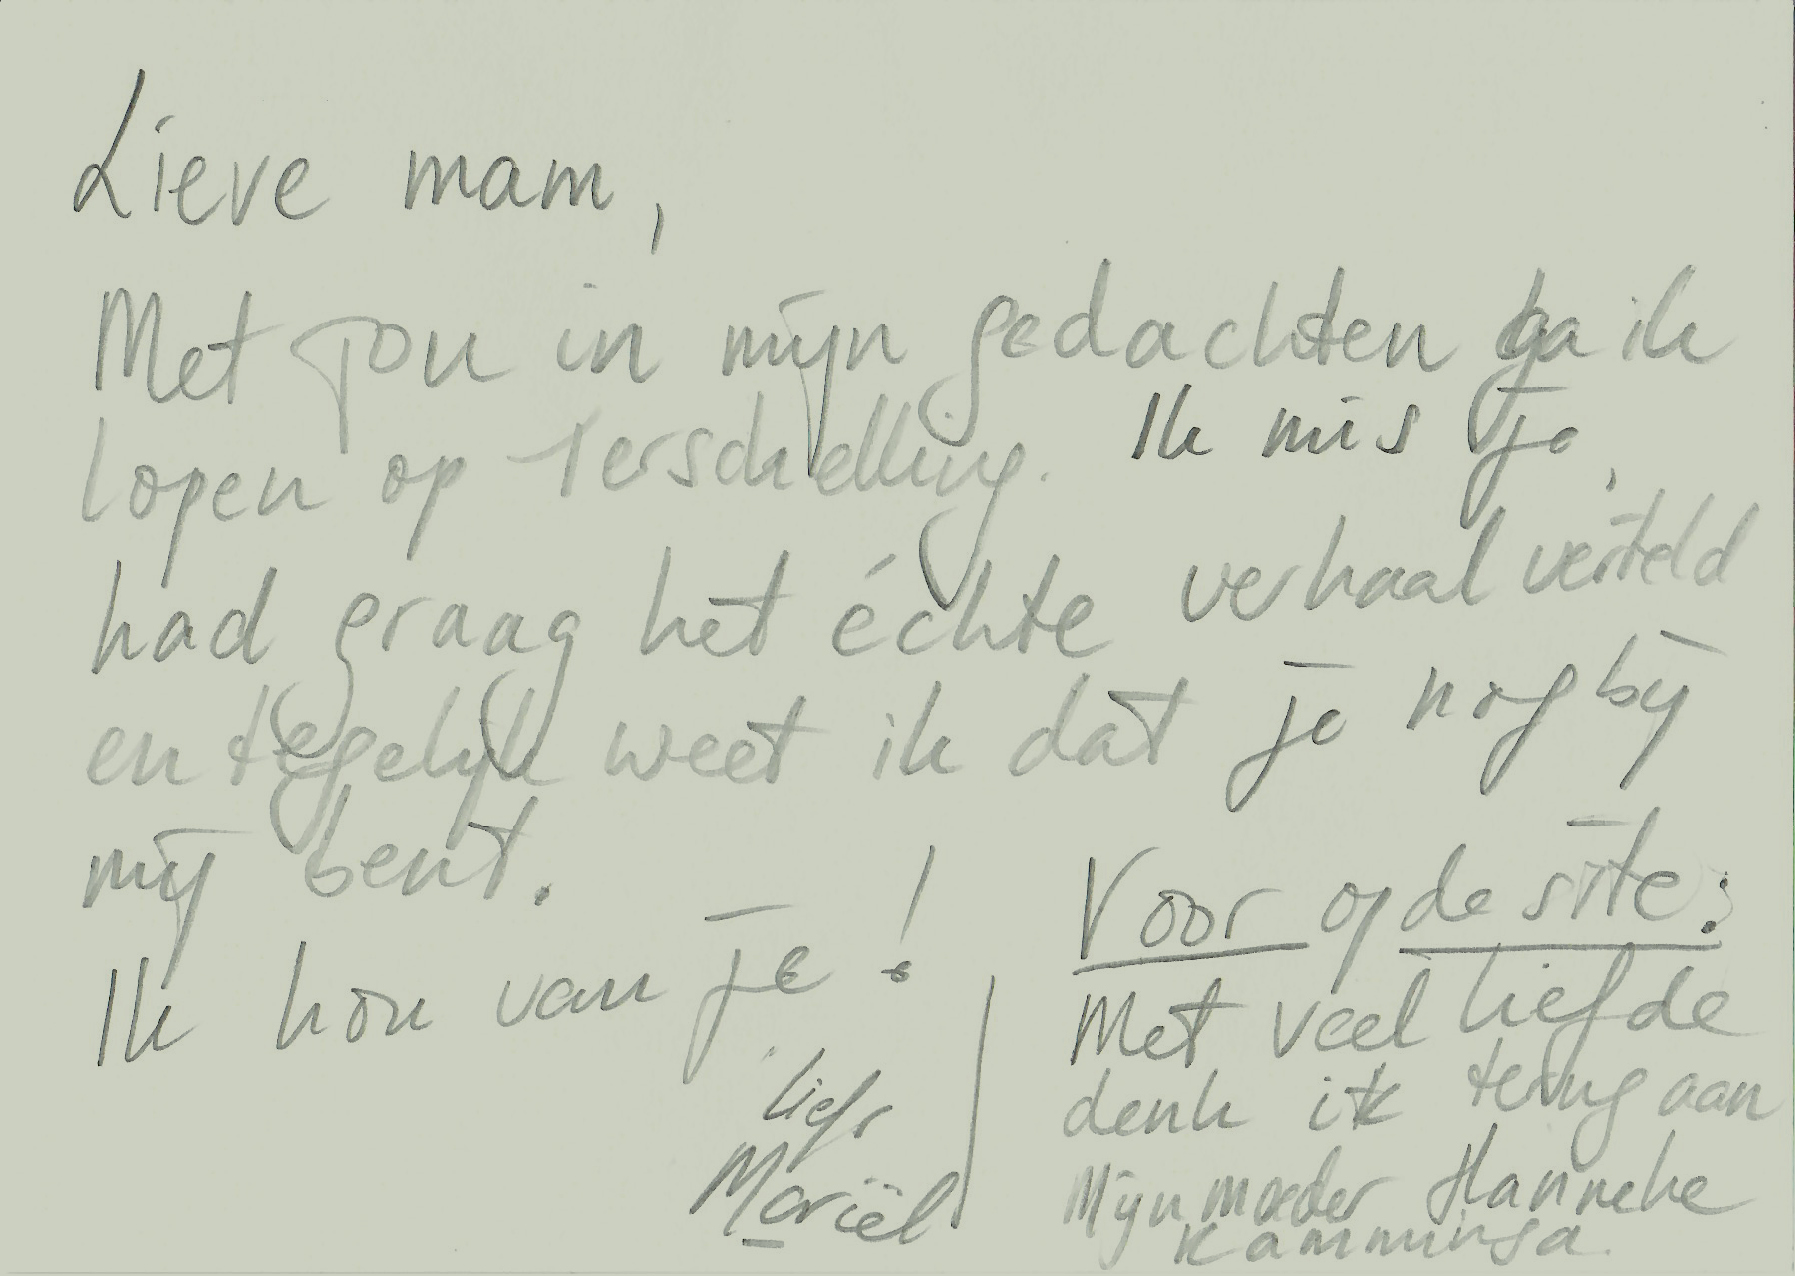 Lieve mam,
Met jou in mijn gedachten ga ik
lopen op Terschelling. Ik mis je,
had graag het échte verhaal verteld
en tegelijk weet ik dat je nog bij
mij bent.
Ik hou van je!
Liefs
Mariël
Voor op de site:
Met veel liefde
denk ik terug aan
Mijn moeder Hanneke
Kamminga.